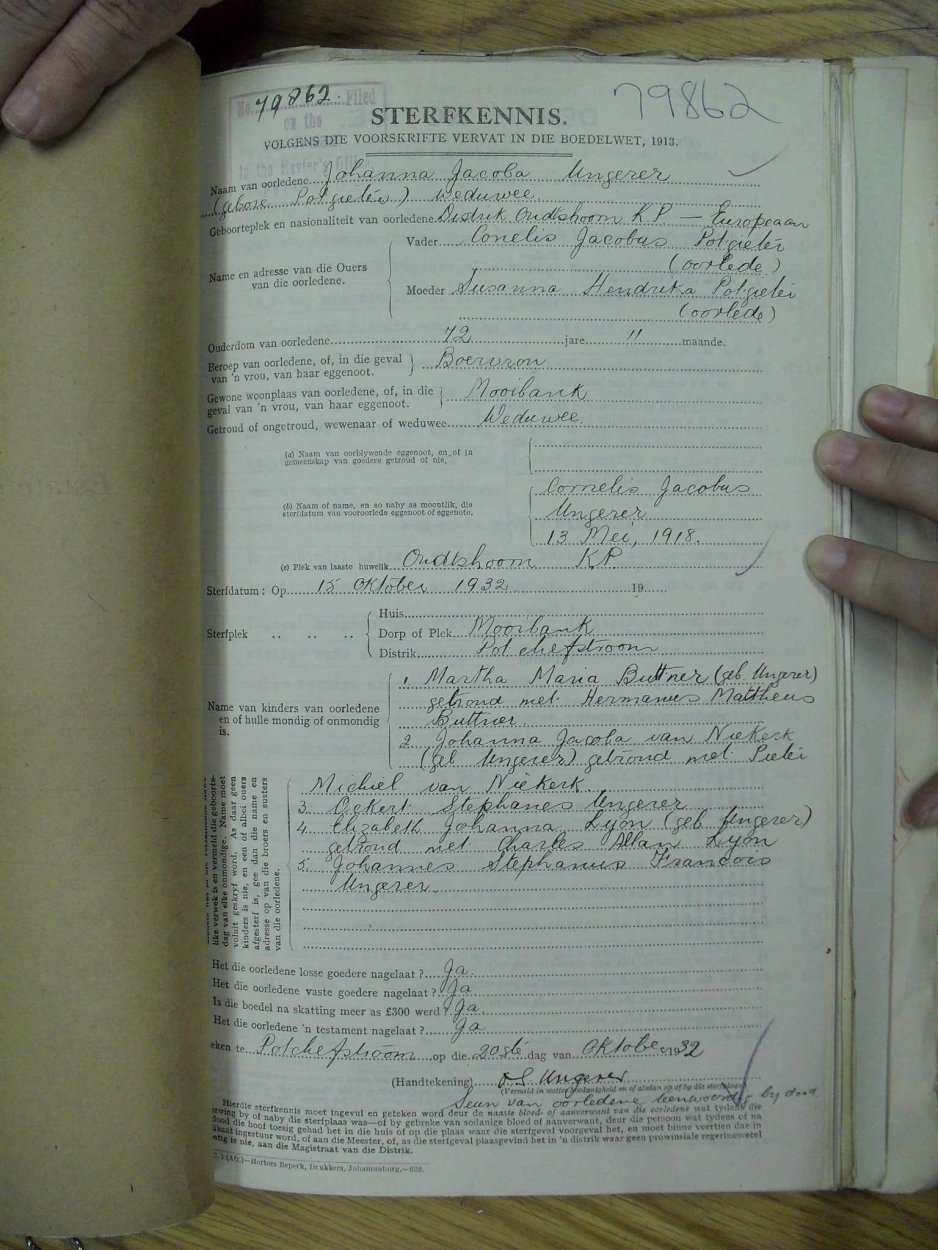 No. 79862. Filed
79862
on the
in the Master's Office
STERFKENNIS.
VOLGENS DIE VOORSKRIFTE VERVAT IN DIE BOEDELWET, 1913.
Naam van oorledene Johanna Jacoba Ungerer
(gebore Potgieter) weduwee.
Geboorteplek en nasionaliteit van oorledene Distrik Oudtshoorn K.P — Europeaan
Name en adresse van die Ouers van die oorledene.
Vader Conelis Jacobus Potgieter
(oorlede)
Moeder Susanna Hendrika Potgieter
(oorlede)
Ouderdom van oorledene 72 jare 11 maande.
Beroep van oorledene, of, in die geval van 'n vrou, van haar eggenoot. } Boervrou
Gewone woonplaas van oorledene, of, in die geval van 'n vrou, van haar eggenoot. } Mooibank
Getroud of ongetroud, wewenaar of weduwee Weduwee.
(a) Naam van oorblywende eggenoot, en of in gemeenskap van goedere getroud of nie.
(b) Naam of name, en so naby as moontlik, die sterfdatum van vooroorlede eggenoot of eggenote.
Cornelis Jacobus
Ungerer
13 Mei, 1918.
(c) Plek van laaste huwelik Oudtshoorn K.P.
Sterfdatum: Op 15 Oktober 1932 19
Sterfplek
Huis
Dorp of Plek Mooibank
Distrik Potchefstroom
Name van kinders van oorledene en of hulle mondig of onmondig is.
1. Martha Maria Buttner (geb. Ungerer)
getroud met Hermanus Mattheus
Buttner.
2. Johanna Jacoba van Niekerk
(geb Ungerer) getroud met Pieter
Michiel van Niekerk
3. Ockert Stephanes Ungerer
4. Elizabeth Johanna Lyon (geb. Ungerer)
getroud met Charles Allan Lyon
5. Johannes Stephanus Francois
Ungerer
like verwek is en vermeld die geboorte-
dag van elke onmondige. Name moet
voluit geskryf word. As daar geen
kinders is nie, en een of albei ouers
afgesterf is, gee dan die name en
adresse op van die broers en susters
van die oorledene.
Het die oorledene losse goedere nagelaat? Ja
Het die oorledene vaste goedere nagelaat? Ja
Is die boedel na skatting meer as £300 werd? Ja
Het die oorledene 'n testament nagelaat? Ja
eken te Potchefstroom op die 20ste dag van Oktober 1932
(Handtekening) O S Ungerer
(Vermeld in watter hoedanigheid en of atsdan op of by die sterfplaas)
Seun van oorledene teenwoordig by dood
Hierdie sterfkennis moet ingevul en geteken word deur die naaste bloed- of aanverwant van die oorledene wat tydens die
erwing by of naby die sterfplaas was—of by gebreke van sodanige bloed of aanverwant, deur die persoon wat tydens of na
dood die hoof toesig gehad het in die huis of op die plaas waar die sterfgeval voorgeval het, en moet binne veertien dae in
ikaat ingestuur word, of aan die Meester, of, as die sterfgeval plaasgevind het in 'n distrik waar geen prowinsiale registrasie
stig is nie, aan die Magistraat van die Distrik.
J. 1 (Afr.)—Hortors Beperk, Drukkers, Johannesburg.—629.